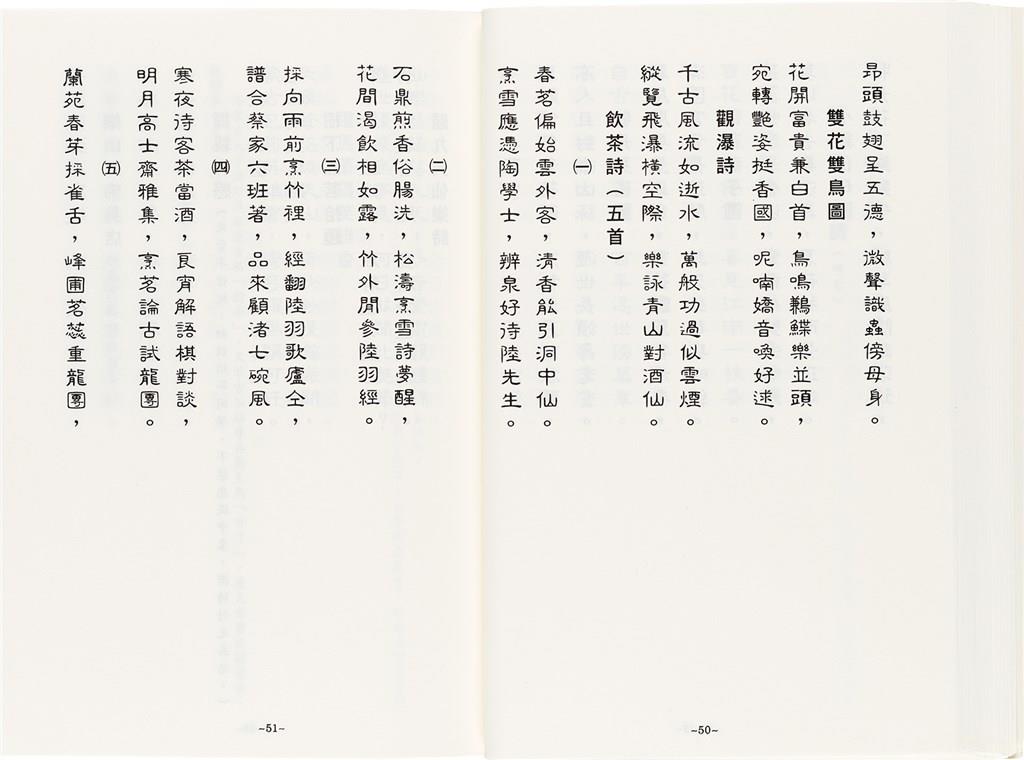 昂頭鼓翅呈五德，微聲識蟲傍母身。
雙花雙鳥圖
花開富貴兼白首，鳥鳴鶼鰈樂並頭，
宛轉艷姿挺香國，呢喃嬌音喚好逑。
觀瀑詩
千古風流如逝水，萬般功過似雲煙。
縱覽飛瀑橫空際，樂詠青山對酒仙。
飲茶詩（五首）
㈠
春茗偏始雲外客，清香能引洞中仙。
烹雪應憑陶學士，辨泉好待陸先生。
~50~
㈡
石鼎煎香俗腸洗，松濤烹雪詩夢醒，
花間渴飲相如露，竹外閒參陸羽經。
㈢
採向雨前烹竹裡，經翻陸羽歌廬仝，
譜合蔡家六班著，品來顧渚七碗風。
㈣
寒夜待客茶當酒，良宵解語棋對談，
明月高士齋雅集，烹茗論古試龍團。
㈤
蘭苑春芽採雀舌，峰圃茗蕊重龍團，
~51~